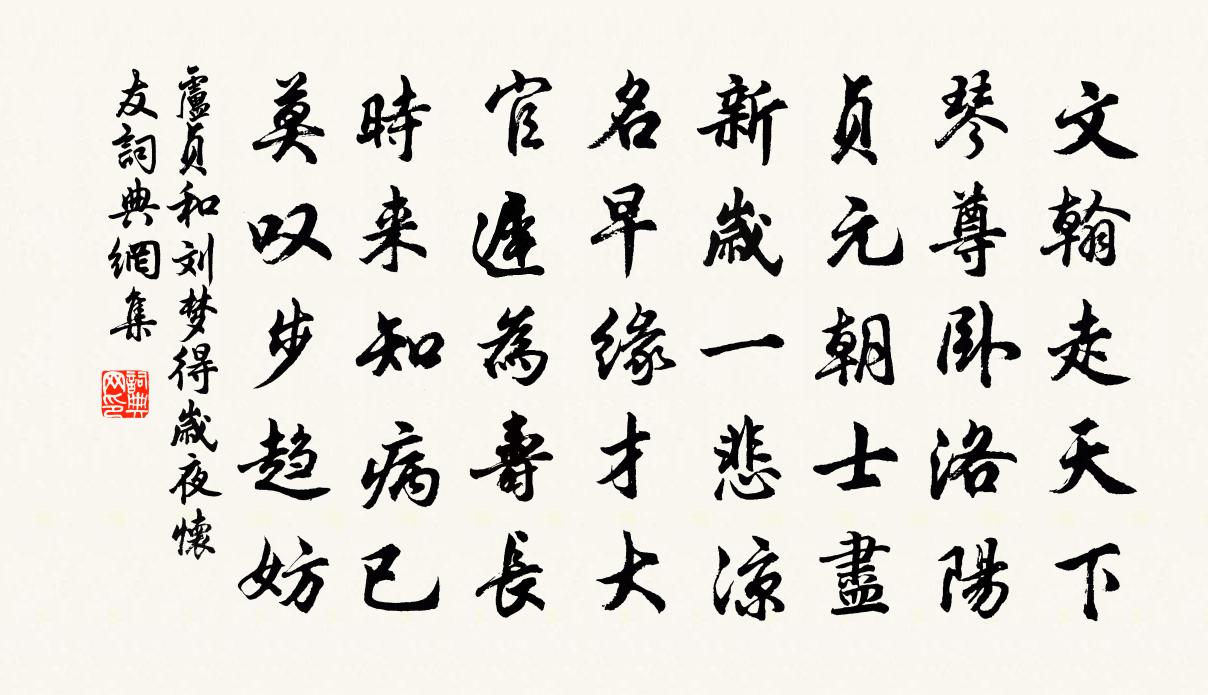 文翰走天下
琴尊卧洛陽
貞元朝士盡
新歲一悲涼
名早緣才大
官遲為壽長
時来知病已
莫叹步趋妨
盧貞和刘梦得歲夜懷
友詞典網集
詞典网印